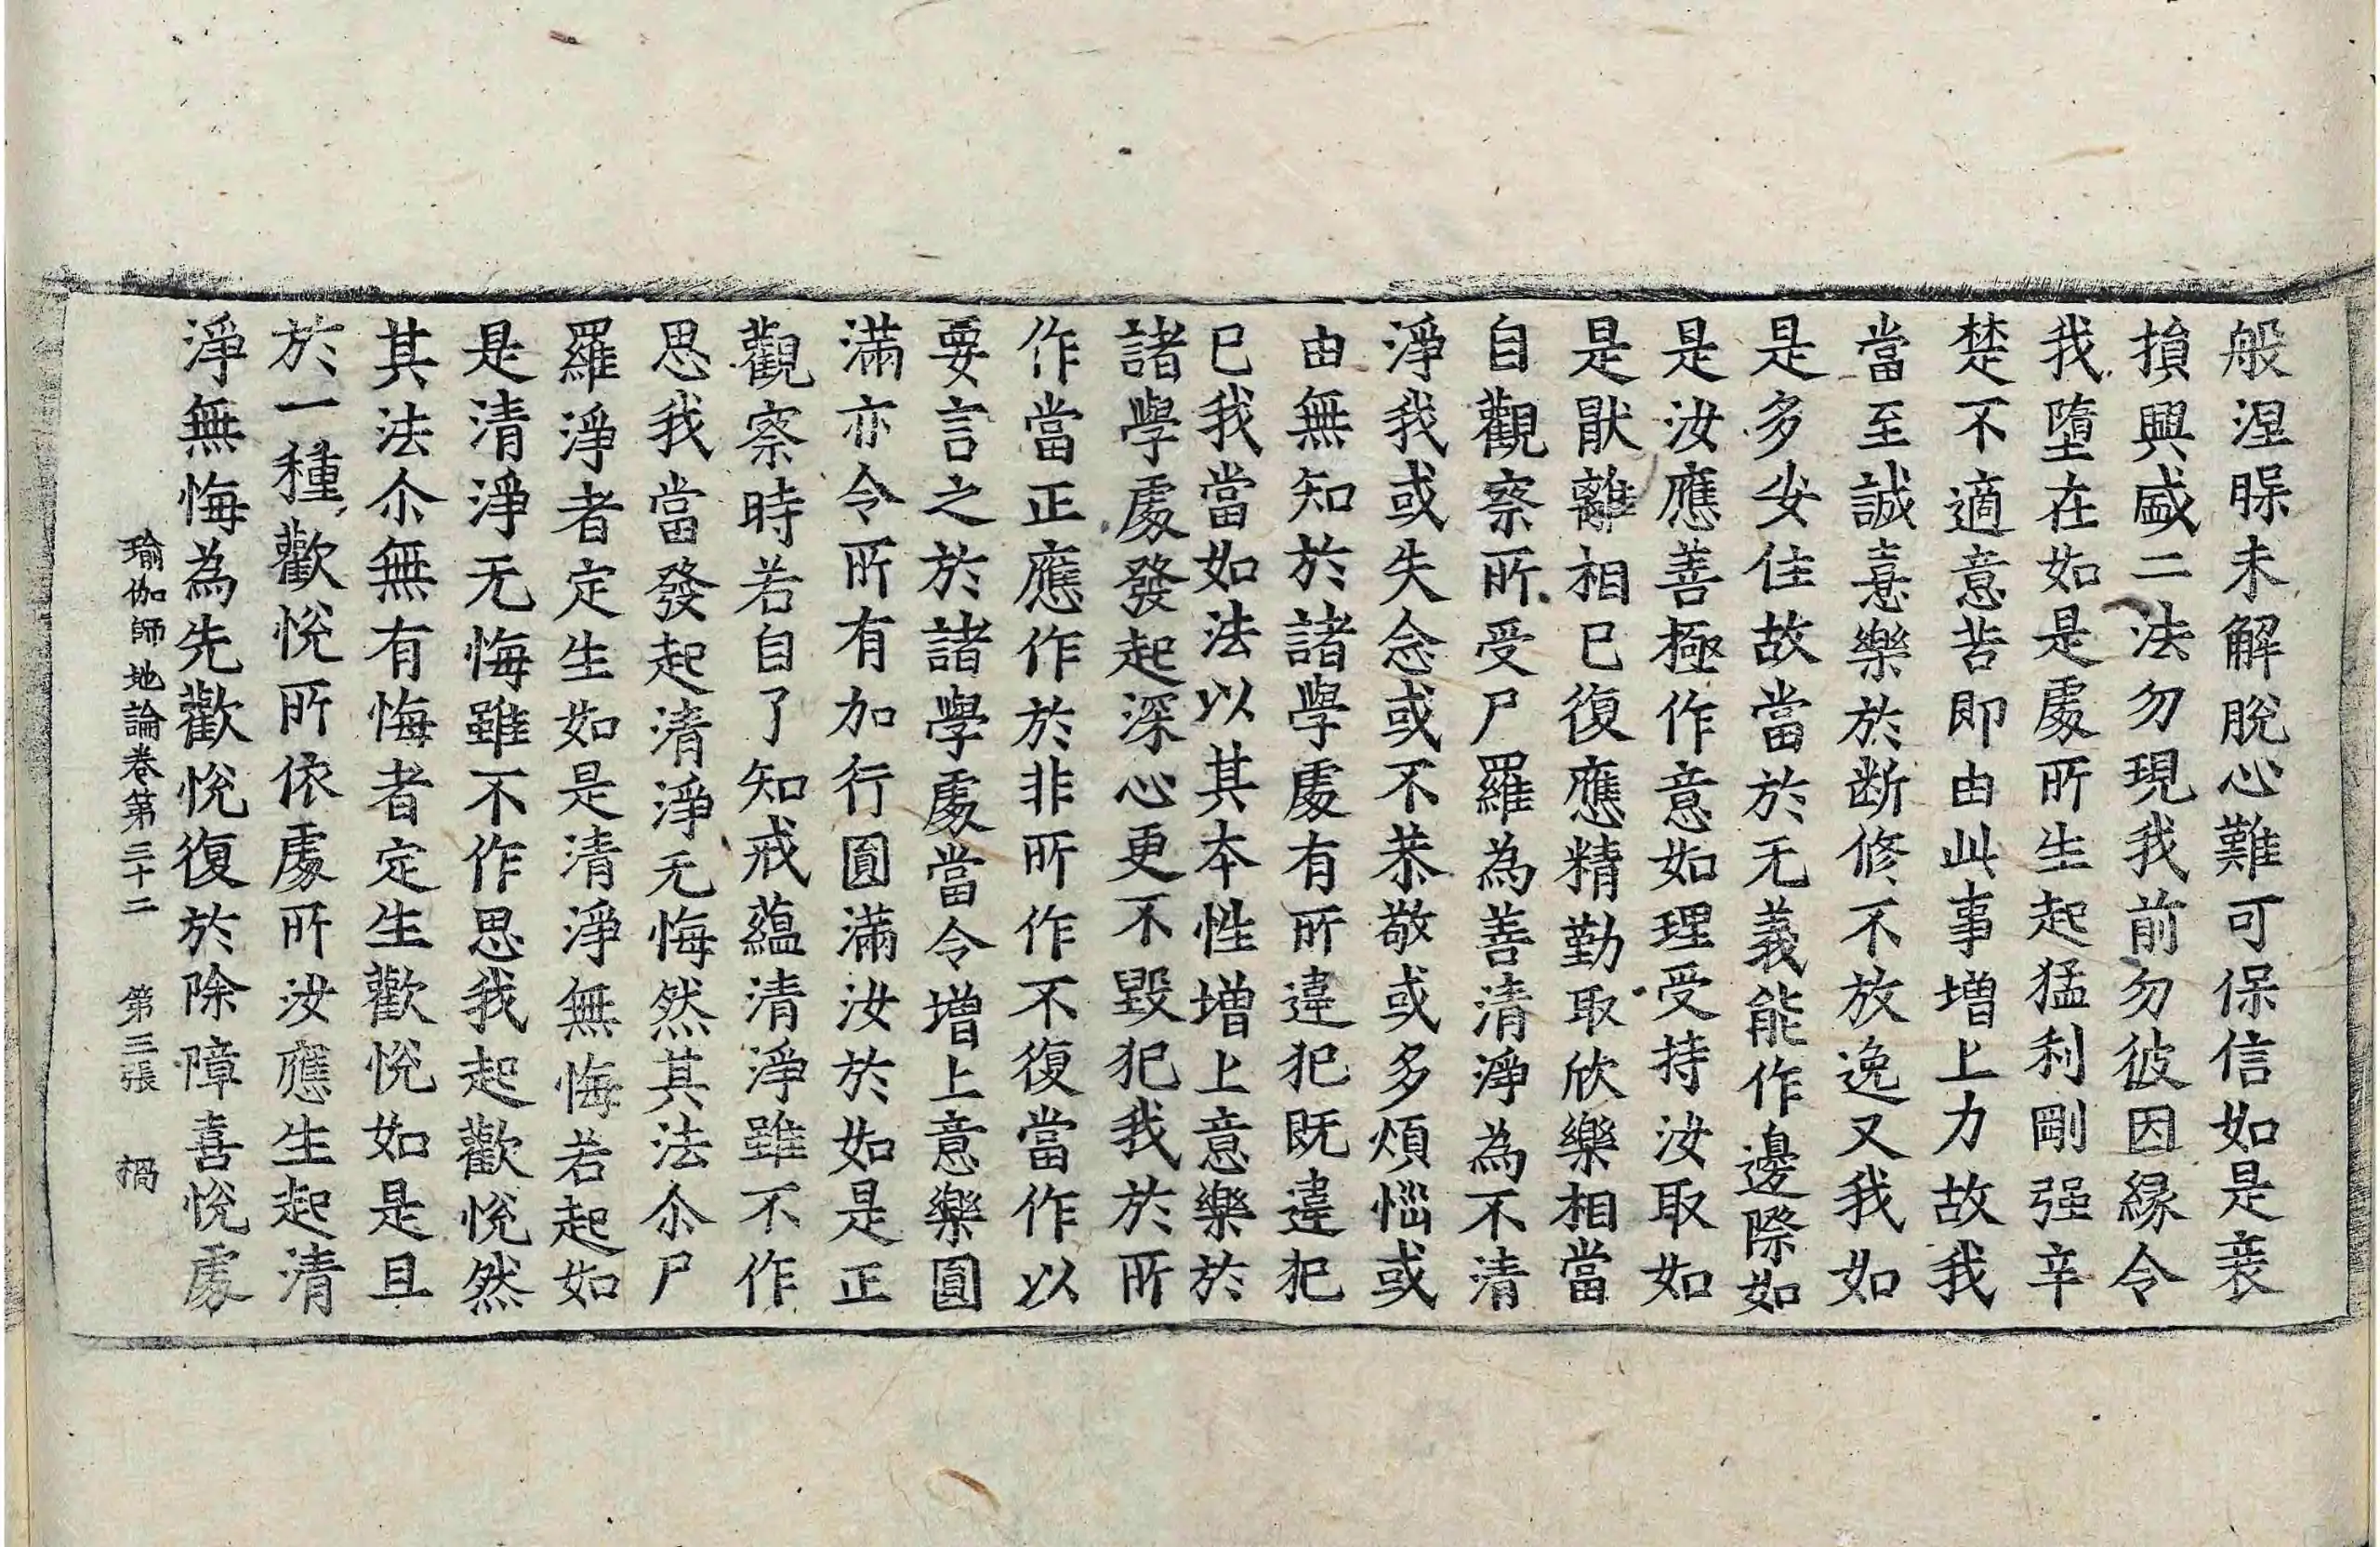 般涅槃未解脫心難可保信如是衰
損興盛二法勿現我前勿彼因緣令
我墮在如是處所生起猛利剛强辛
楚不適意苦即由此事增上力故我
當至誠憙樂於断修不放逸又我如
是多安住故當於无義能作邊際如
是汝應善極作意如理受持汝取如
是猒離相已復應精勤取欣樂相當
自觀察所受尸羅為善清淨為不清
淨我或失念或不恭敬或多煩惱或
由無知於諸學處有所違犯既違犯
已我當如法以其本性增上意樂於
諸學處發起深心更不毀犯我於所
作當正應作於非所作不復當作以
要言之於諸學處當令增上意樂圓
滿亦令所有加行圓滿汝於如是正
觀察時若自了知戒蘊清淨雖不作
思我當發起清淨无悔然其法尒尸
羅淨者定生如是清淨無悔若起如
是清淨无悔雖不作思我起歡悅然
其法尒無有悔者定生歡悅如是且
於一種歡悅所依處所汝應生起清
淨無悔為先歡悅復於除障喜悅處
瑜伽師地論卷第三十二　第三張　禍